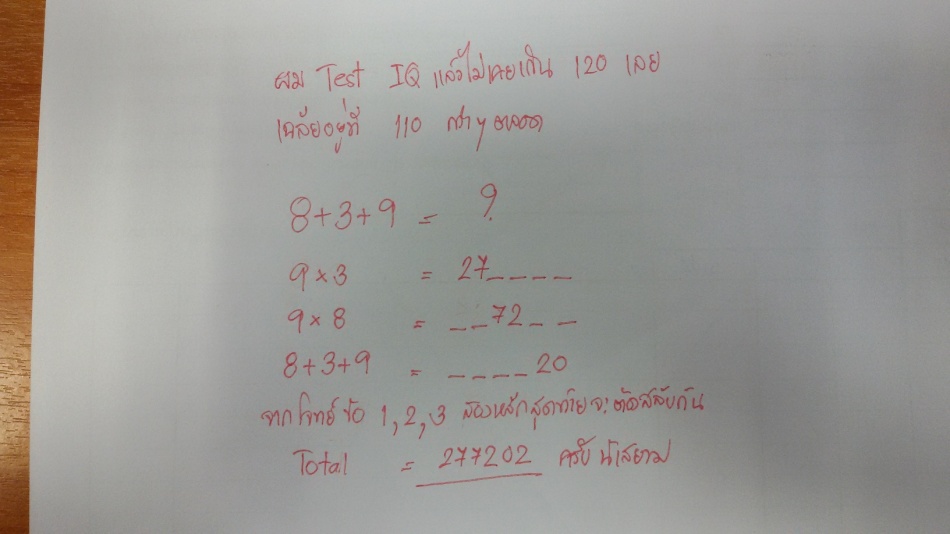 ผม Test IQ แล้วไม่เคยเกิน 120 เลย
เฉลี่ยอยู่ที่ 110 กว่าๆ ตลอด
8+3+9 = ?
9×3 = 27____
9×8 = __72__
8+3+9 = ____20
จากโจทย์ข้อ 1,2,3 สองหลักสุดท้ายจะต้องสลับกัน
Total = 277202 ครับ น้าสยาม